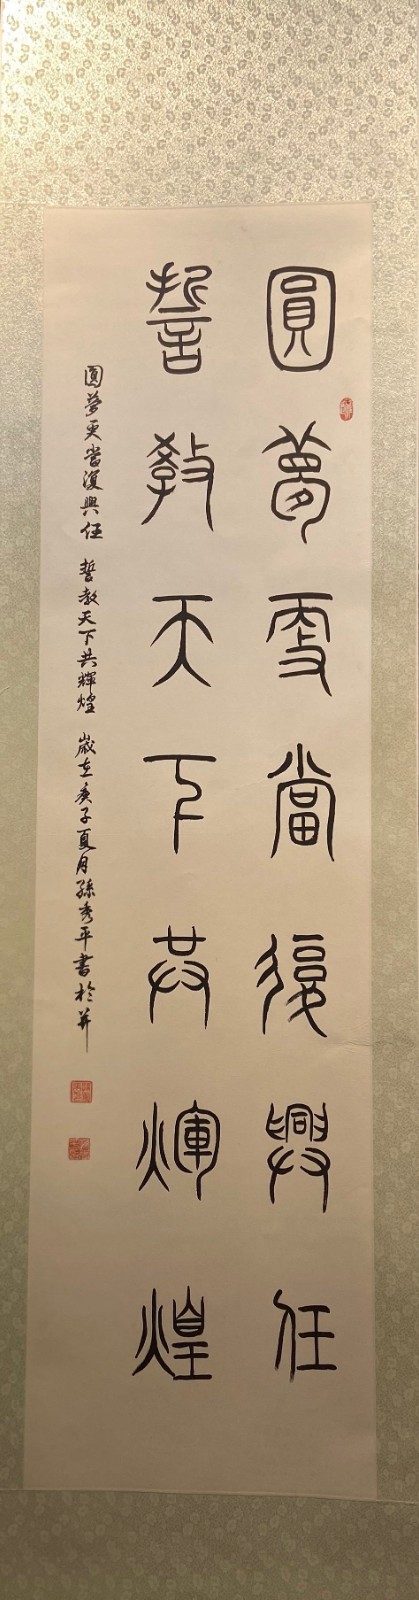 圓夢更當復興任
誓教天下共輝煌
圓夢更當復興任 誓教天下共輝煌 歲在庚子夏月孫秀平書於并